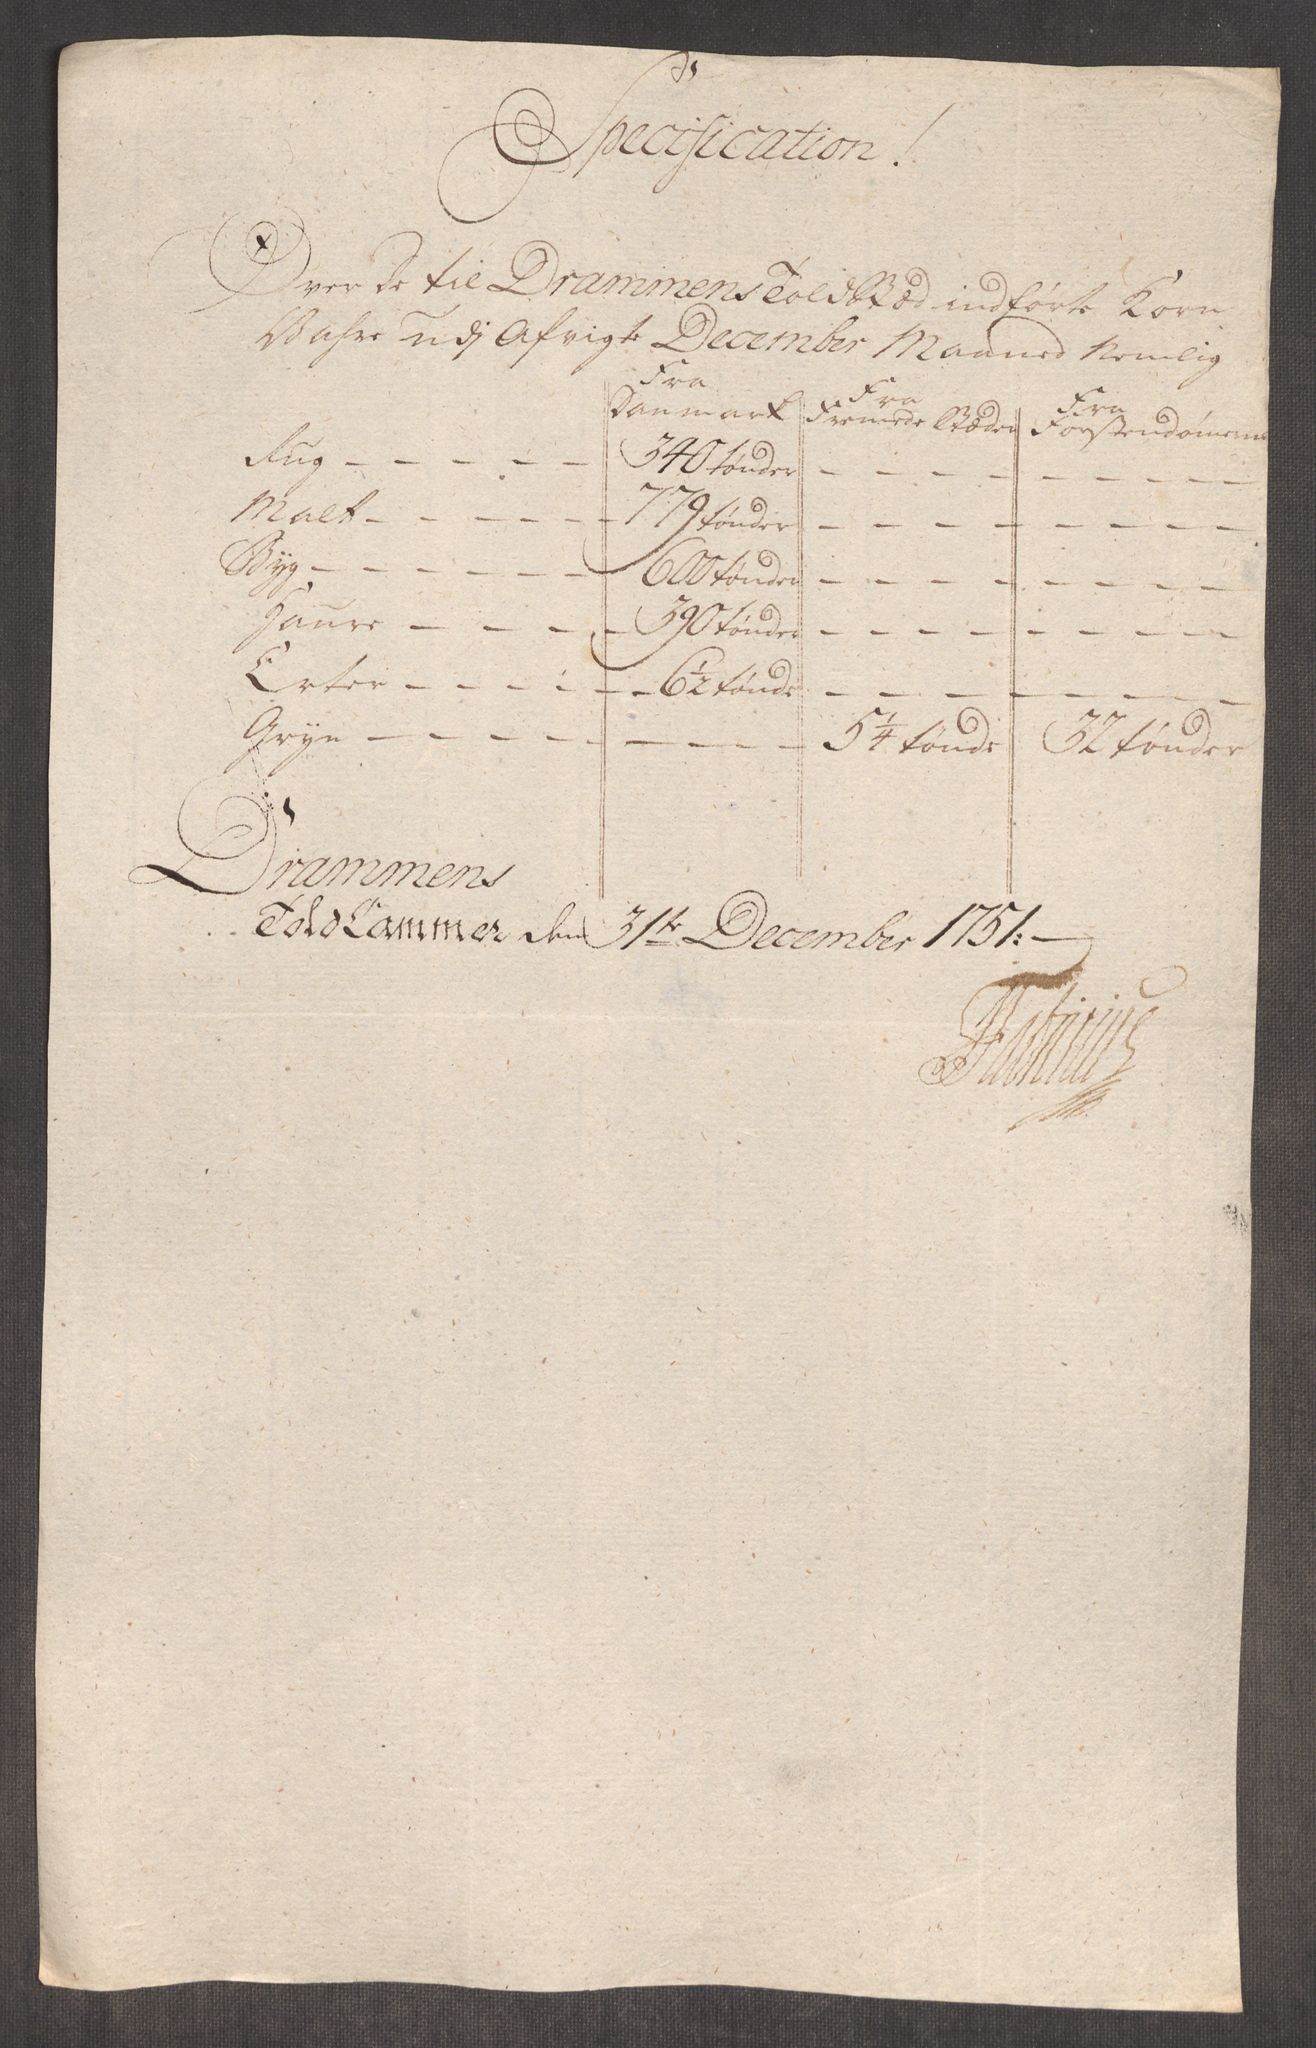 Specification!
Over De til Drammens Told Stæd indførte Korn
Vahre udj Afvigte December Maaned Nemlig
Fra Danmark Fra Fremede Stæder Fra Førstendømerne
Rug - - - - - 340 tønder - - - - - - - -
Malt - - - - - 779 tønder - - - - - - - -
Byg - - - - - - 600 tønder - - - - - - - -
Haure - - - - 390 tønder - - - - - - - -
Erter - - - - - 6 1/2 tønde - - - - - - - -
Gryn - - - - - - - - 5 1/4 tønde 32 tønder
Drammens
Told Cammer den 31te December 1751:
Fabricius